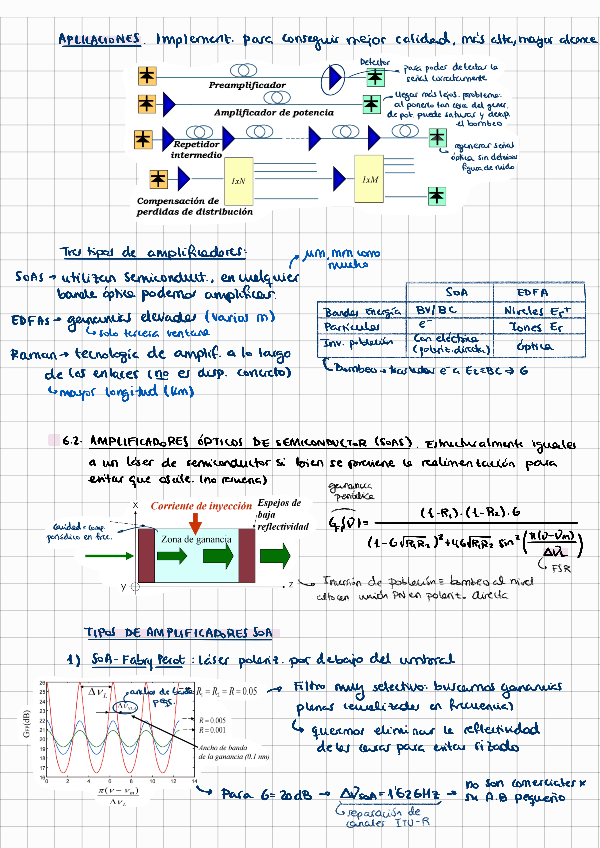 APLICACIONES. Implement. para conseguir mejor calidad, más alta, mayor alcance
Detector
→ para poder detectar la
señal correctamente
Preamplificador
→ llegar más lejos. problema:
al ponerlo tan cerca del gener.
de pot. puede saturar y
el bombeo
Amplificador de potencia
Repetidor
intermedio
regenerar señal
óptica sin
figura de ruido
1xN
1xM
Compensación de
perdidas de distribución
Tres tipos de amplificadores:
μm, mm como
mucho
SOAs → utilizan semiconduct., en cualquier
banda óptica podemos amplificar.
EDFAs → ganancias elevadas (varios m)
↳ solo tercera ventana
Raman → tecnología de amplif. a lo largo
de los enlaces (no es disp. concreto)
↳ mayor longitud (km)
SOA EDFA
Bandas Energía BV/BC Niveles Er+
Partículas e⁻ Iones Er
Inv. población Con eléctrica (polariz. directa) óptica
↳ Bombeo → trasladar e⁻ a E₂=BC → G
6.2. AMPLIFICADORES ÓPTICOS DE SEMICONDUCTOR (SOAS). Estructuralmente iguales
a un láser de semiconductor si bien se previene la realimentación para
evitar que oscile. (no resuena)
ganancia
periódica
Corriente de inyección
Espejos de
baja
reflectividad
Cavidad = comp.
periódico en frec.
X
Zona de ganancia
y
z
G_FP(ν) = (1-R₁).(1-R₂).G / (1-G√R₁R₂)² + 4G√R₁R₂ sin² (π(ν-νm)/Δν_L)
↳ FSR
→ Inversión de población = bombeo al nivel
alto en unión PN en polariz. directa
TIPOS DE AMPLIFICADORES SOA
1) SOA-Fabry Perot: láser polariz. por debajo del umbral
26
25
24
23
22
21
20
19
18
17
16
0 2 4 6 8 10 12 14
G_FP(dB)
Δν_L
ancho de banda
Δν
R₁ = R₂ = R = 0.05
R = 0.005
R = 0.001
Ancho de banda
de la ganancia (0.1 nm)
π(ν − ν_m)
Δν_L
→ Filtro muy selectivo: buscamos ganancias
planas (ecualizadas en frecuencia)
↳ queremos eliminar la reflectividad
de las caras para evitar rizado
↳ Para G=20dB → Δν_SOA = 1'62GHz → no son comerciales x
su A.B pequeño
↳ separación de
canales ITU-R